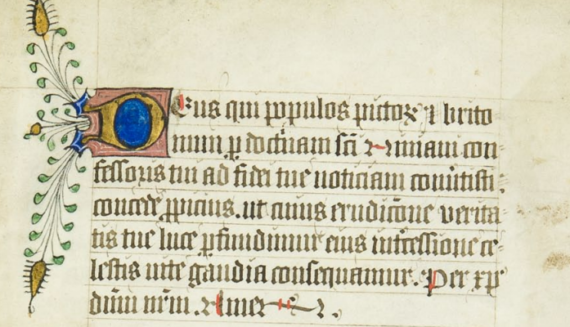 Deus qui populos pictoꝝ ⁊ brito
num ꝑ doctⁱnam scī Niniani con
fessoris tui ad fidei tue noticiam cōuertisti.
concede ꝓpicius. ut cuius erudicōne verita
tis tue luce ꝑfundimur eius int̄cessione ce
lestis uite gaudia consequamur. Per xp̄m
dūm nr̄m. Amen.